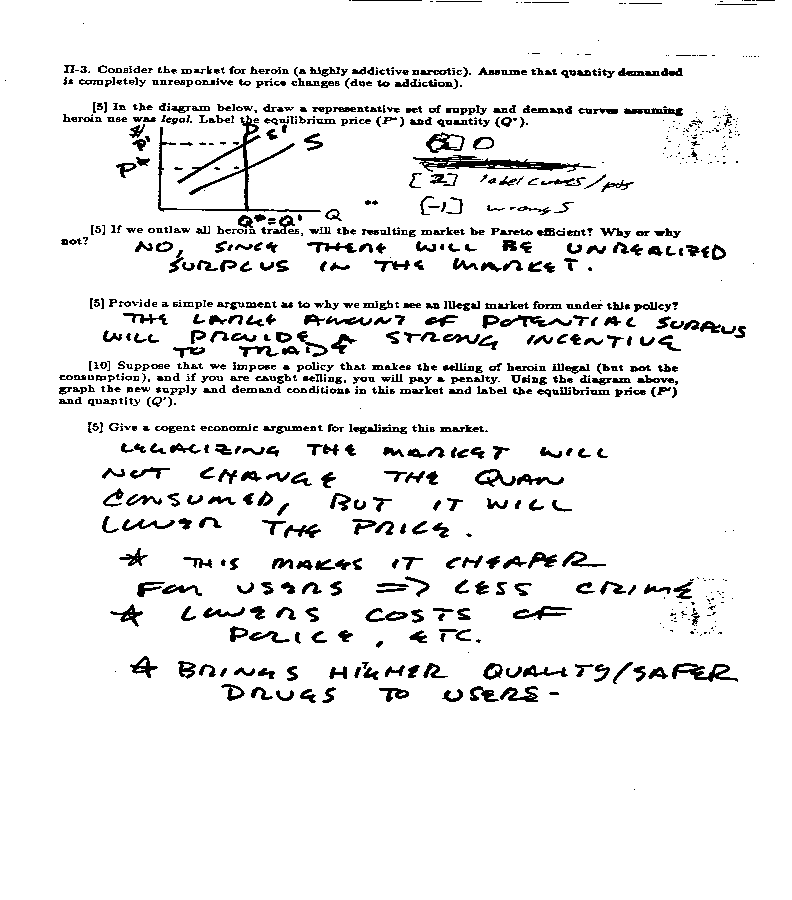 II-3. Consider the market for heroin (a highly addictive narcotic). Assume that quantity demanded
is completely unresponsive to price changes (due to addiction).
[5] In the diagram below, draw a representative set of supply and demand curves assuming
heroin use was legal. Label the equilibrium price (P*) and quantity (Q*).
$/
P'
P*
D
S'
S
Q*=Q'
Q
D
[2] label curves/pts
[-1] wrong S
[5] If we outlaw all heroin trades, will the resulting market be Pareto efficient? Why or why
not?
NO, SINCE THERE WILL BE UNREALIZED
SURPLUS IN THE MARKET.
[5] Provide a simple argument as to why we might see an illegal market form under this policy?
THE LARGE AMOUNT OF POTENTIAL SURPLUS
WILL PROVIDE A STRONG INCENTIVE
TO TRADE
[10] Suppose that we impose a policy that makes the selling of heroin illegal (but not the
consumption), and if you are caught selling, you will pay a penalty. Using the diagram above,
graph the new supply and demand conditions in this market and label the equilibrium price (P')
and quantity (Q').
[5] Give a cogent economic argument for legalizing this market.
LEGALIZING THE MARKET WILL
NOT CHANGE THE QUAN
CONSUMED, BUT IT WILL
LOWER THE PRICE.
* THIS MAKES IT CHEAPER
FOR USERS => LESS CRIME
* LOWERS COSTS OF
POLICE, ETC.
* BRINGS HIGHER QUALITY/SAFER
DRUGS TO USERS-